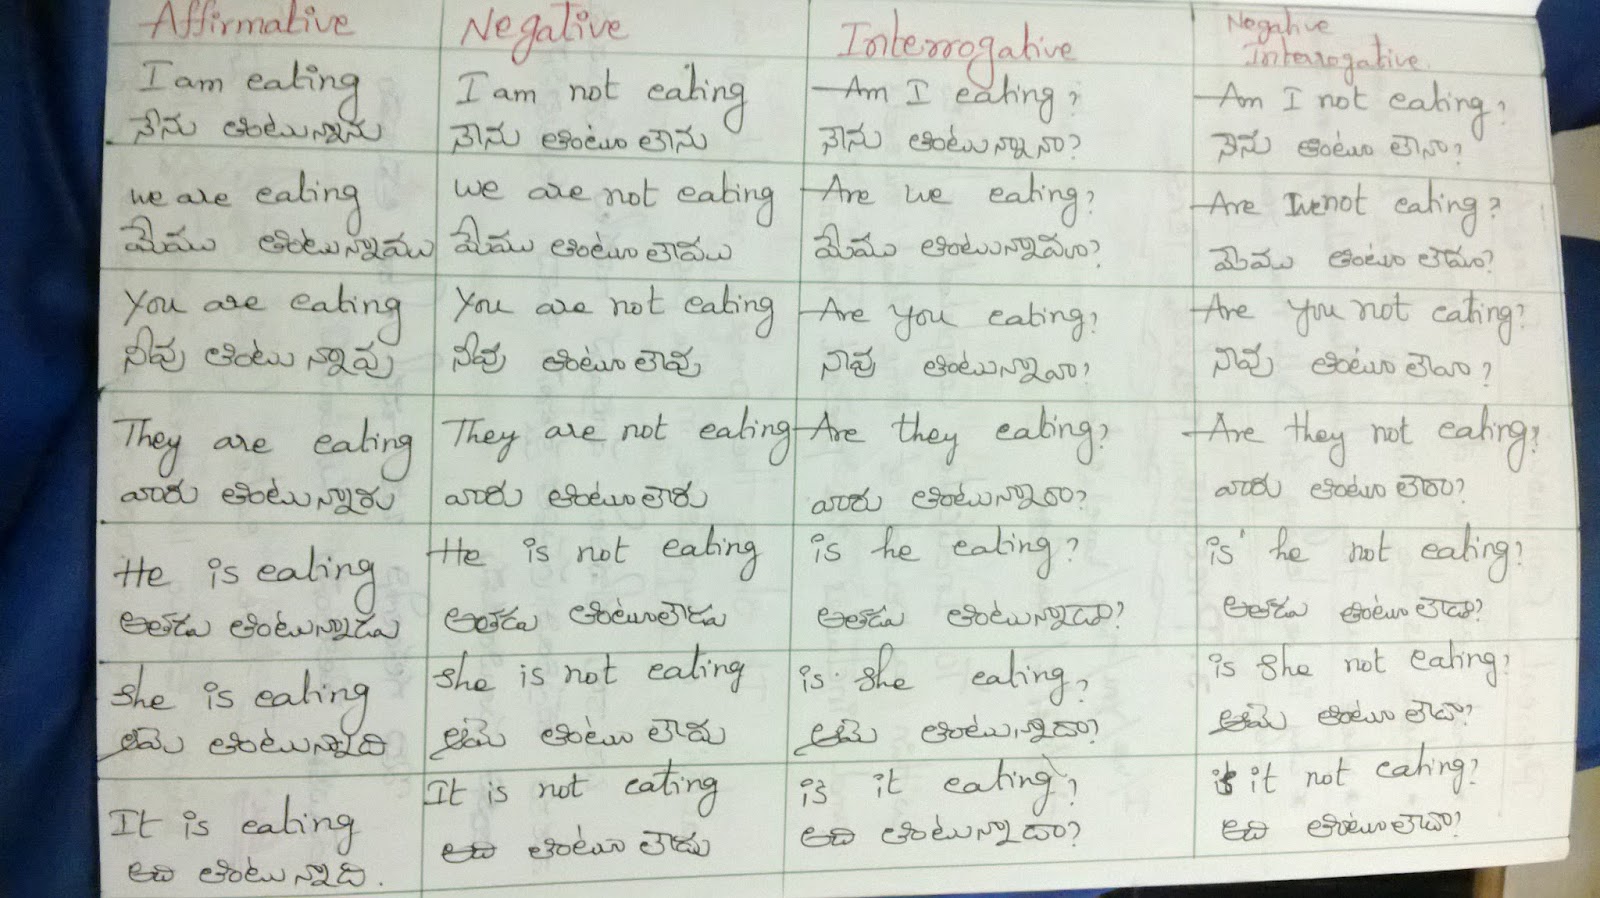 Affirmative
Negative
Interrogative
Negative
Interrogative.
I am eating
నేను తింటున్నాను
I am not eating
నేను తింటూ లేను
Am I eating?
నేను తింటున్నానా?
Am I not eating?
నేను తింటూ లేనా?
we are eating
మేము తింటున్నాము
we are not eating
మేము తింటూ లేము
Are we eating?
మేము తింటున్నామా?
Are we not eating?
మేము తింటూ లేమా?
You are eating
నీవు తింటున్నావు
You are not eating
నీవు తింటూ లేవు
Are you eating?
నీవు తింటున్నావా?
Are you not eating?
నీవు తింటూ లేవా?
They are eating
వారు తింటున్నారు
They are not eating
వారు తింటూ లేరు
Are they eating?
వారు తింటున్నారా?
Are they not eating?
వారు తింటూ లేరా?
He is eating
అతడు తింటున్నాడు
He is not eating
అతడు తింటూలేడు
is he eating?
అతడు తింటున్నాడా?
is he not eating?
అతడు తింటూ లేడా?
She is eating
ఆమె తింటున్నాది
She is not eating
ఆమె తింటూ లేదు
is she eating?
ఆమె తింటున్నాదా?
is she not eating?
ఆమె తింటూ లేదా?
It is eating
అది తింటున్నాది.
It is not eating
అది తింటూ లేదు
is it eating?
అది తింటున్నాదా?
is it not eating?
అది తింటూ లేదా?